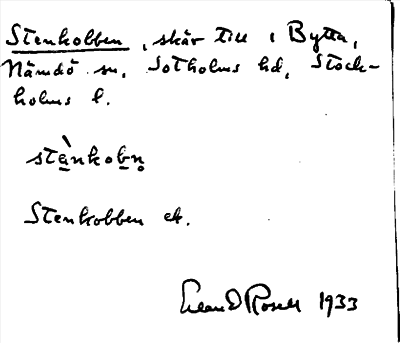 Stenkobben, skär till i Bytta,
Nämdö sn. Sotholms hd, Stock-
holms l.
stànkobn̥
Stenkobben ek.
1933